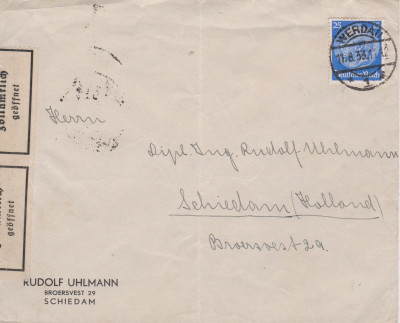 25
WERDAU
Deutsches Reich
Zollamtlich
geöffnet
Herrn
Dipl. Ing. Rudolf Uhlmann
Schiedam (Holland)
Broersvest 29.
geöffnet
RUDOLF UHLMANN
BROERSVEST 29
SCHIEDAM